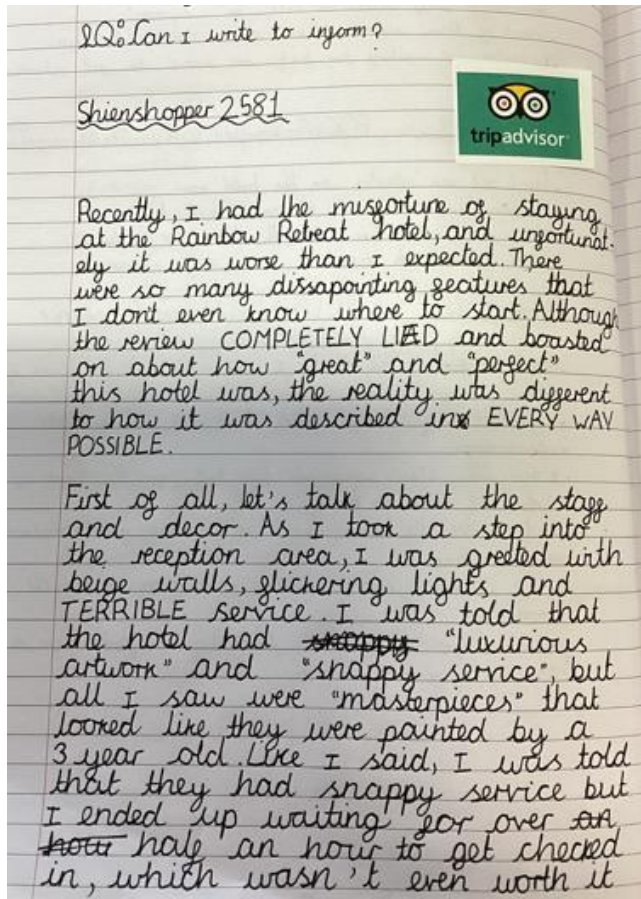 LQ: Can I write to inform?
Shienshopper 2581
tripadvisor
Recently, I had the misfortune of staying
at the Rainbow Retreat hotel, and unfortunat-
ely it was worse than I expected. There
were so many dissapointing features that
I don't even know where to start. Although
the review COMPLETELY LIED and boasted
on about how "great" and "perfect"
this hotel was, the reality was different
to how it was described in EVERY WAY
POSSIBLE.
First of all, let's talk about the staff
and decor. As I took a step into
the reception area, I was greeted with
beige walls, flickering lights and
TERRIBLE service. I was told that
the hotel had snappy "luxurious
artwork" and "snappy service", but
all I saw were "masterpieces" that
looked like they were painted by a
3 year old. Like I said, I was told
that they had snappy service but
I ended up waiting for over an
hour half an hour to get checked
in, which wasn't even worth it